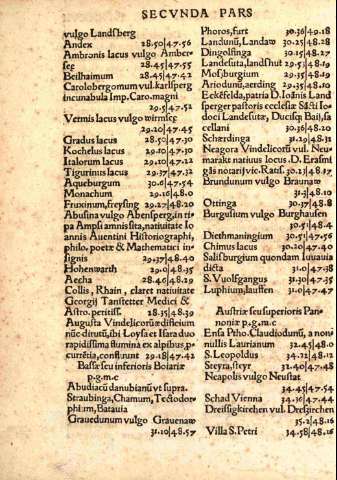 SECVNDA PARS
vulgo Landsberg
Andex 28.50|47.56
Ambronis lacus vulgo Amber
see 28.45|47.55
Beilhaimum 28.45|47.42
Carolobergomum vul. karlsperg
incunabula Imp. Caro. magni
29.5|47.52
Vermis lacus vulgo wirmsee
29.20|47.45
Gradus lacus 28.50|47.30
Kochelus lacus 29.10|47.30
Italorum lacus 29.10|47.22
Tigurinus lacus 29.37|47.32
Aqueburgum 30.6|47.54
Monachum 29.16|48.0
Fruxinum, freysing 29.27|48.20
Abusina vulgo Abensperg, in ripa
Ampsi amnis sita, natiuitate Io
annis Auentini Historiographi,
philo. poetæ & Mathematici in-
signis 29.37|48.40
Hohenwarth 29.0|48.35
Aecha 28.40|48.29
Collis, Rhain, claret natiuitate
Georgij Tanstetter Medici &
Astro. peritiss. 28.35|48.39
Augusta Vindelicorum dificium
nūc dirutū, ibi Loysa et Ifara duo
rapidissima flumina ex alpibus, p
currētia, confluunt 29.18|47.42
Bassæ seu inferioris Boiariæ
p.g.m.c
Abudiacū danubianū vt supra.
Straubinga, Chamum, Tectodor
phium, Batauia
Grauedunum vulgo Grauenaw
31.10|48.57
Phoros, furt 30.36|49.18
Landunū, Landaw 30.25|48.28
Dingolfinga 30.15|48.27
Landesuta, landshut 29.51|48.19
Mosburgium 29.35|48.19
Ariodunū, aerding 29.35|48.10
Eckēfelda, patria D. Ioānis Land
sperger pastoris ecclesiæ Sācti Io
doci Landesutæ, Ducisq; Baij, sa
cellani 30.36|48.20
Scherdinga 31.29|48.31
Neagora Vindelicorū vul. Neu
markt natiuus locus. D. Erasmi
Brundunum vulgo Braunaw
31.3|48.10
Ottinga 30.37|48.8
Burgusium vulgo Burghausen
30.51|48.4
Diethmaningium 30.51|47.56
Chimus lacus 30.20|47.40
Salisburgium quondam Iuuauia
dicta 31.0|47.38
S. Vuolfgangus 31.30|47.35
Luphium, lauffen 31.0|47.47
Austriæ seu superioris Pan-
noniæ p.g.m.c
Ensa Ptho. Claudiodunū, a non
nullis Laurianum 32.45|48.0
S. Leopoldus 34.22|48.12
Steyra, steyr 32.40|47.48
Neapolis vulgo Neustat
34.45|47.54
Schad Vienna 34.30|47.44
Dreissigkirchen vul. Dresgirchen
35.2|48.16
Villa S. Petri 34.58|48.16